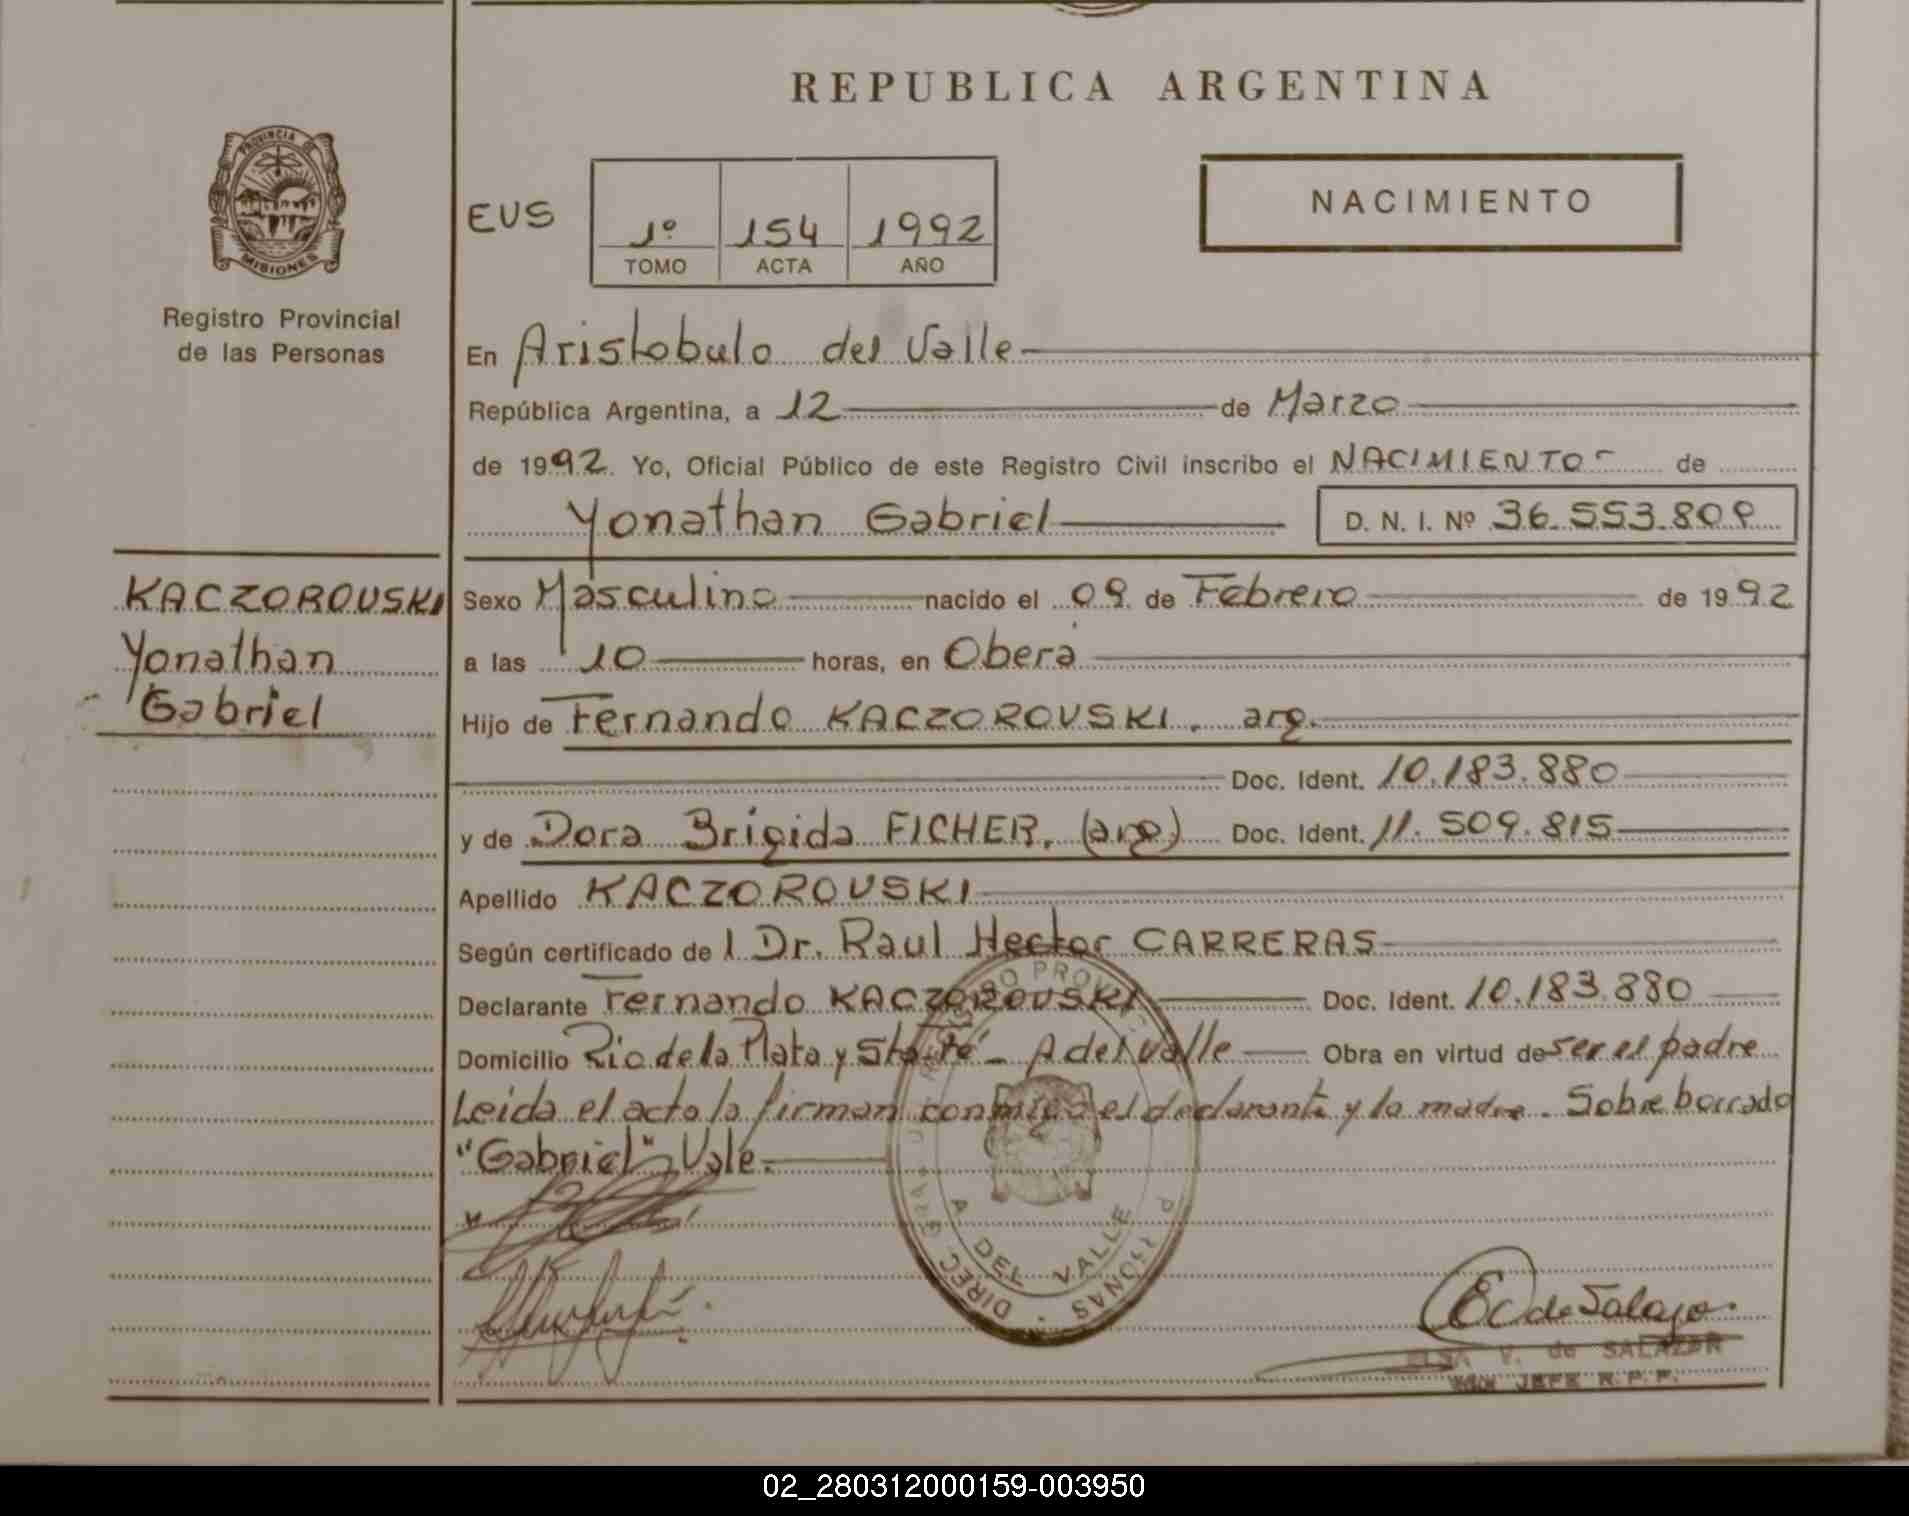 REPUBLICA ARGENTINA
PROVINCIA DE
MISIONES
Registro Provincial
de las Personas
EUS
1º 154 1992
TOMO ACTA AÑO
NACIMIENTO
En Aristobulo del Valle
República Argentina, a 12 de Marzo
de 1992. Yo, Oficial Público de este Registro Civil inscribo el NACIMIENTO de
Yonathan Gabriel D. N. I. Nº 36.553.809
KACZOROVSKI
Yonathan
Gabriel
Sexo Masculino nacido el 09 de Febrero de 1992
a las 10 horas, en Oberá
Hijo de Fernando KACZOROVSKI, arg.
Doc. Ident. 10.183.880
y de Dora Brigida FICHER, (arg) Doc. Ident. 11.509.815
Apellido KACZOROVSKI
Según certificado de l Dr. Raul Hector CARRERAS
Declarante Fernando KACZOROVSKI Doc. Ident. 10.183.880
Domicilio Rio de la Plata y Sta Fé - A del Valle Obra en virtud de ser el padre
Leida el acta la firman conmigo el declarante y la madre. Sobre borrado
"Gabriel" Vale.
A DEL VALLE
E C de Salazar
ELSA V. de SALAZAR
JEFE R.P.P.
02_280312000159-003950